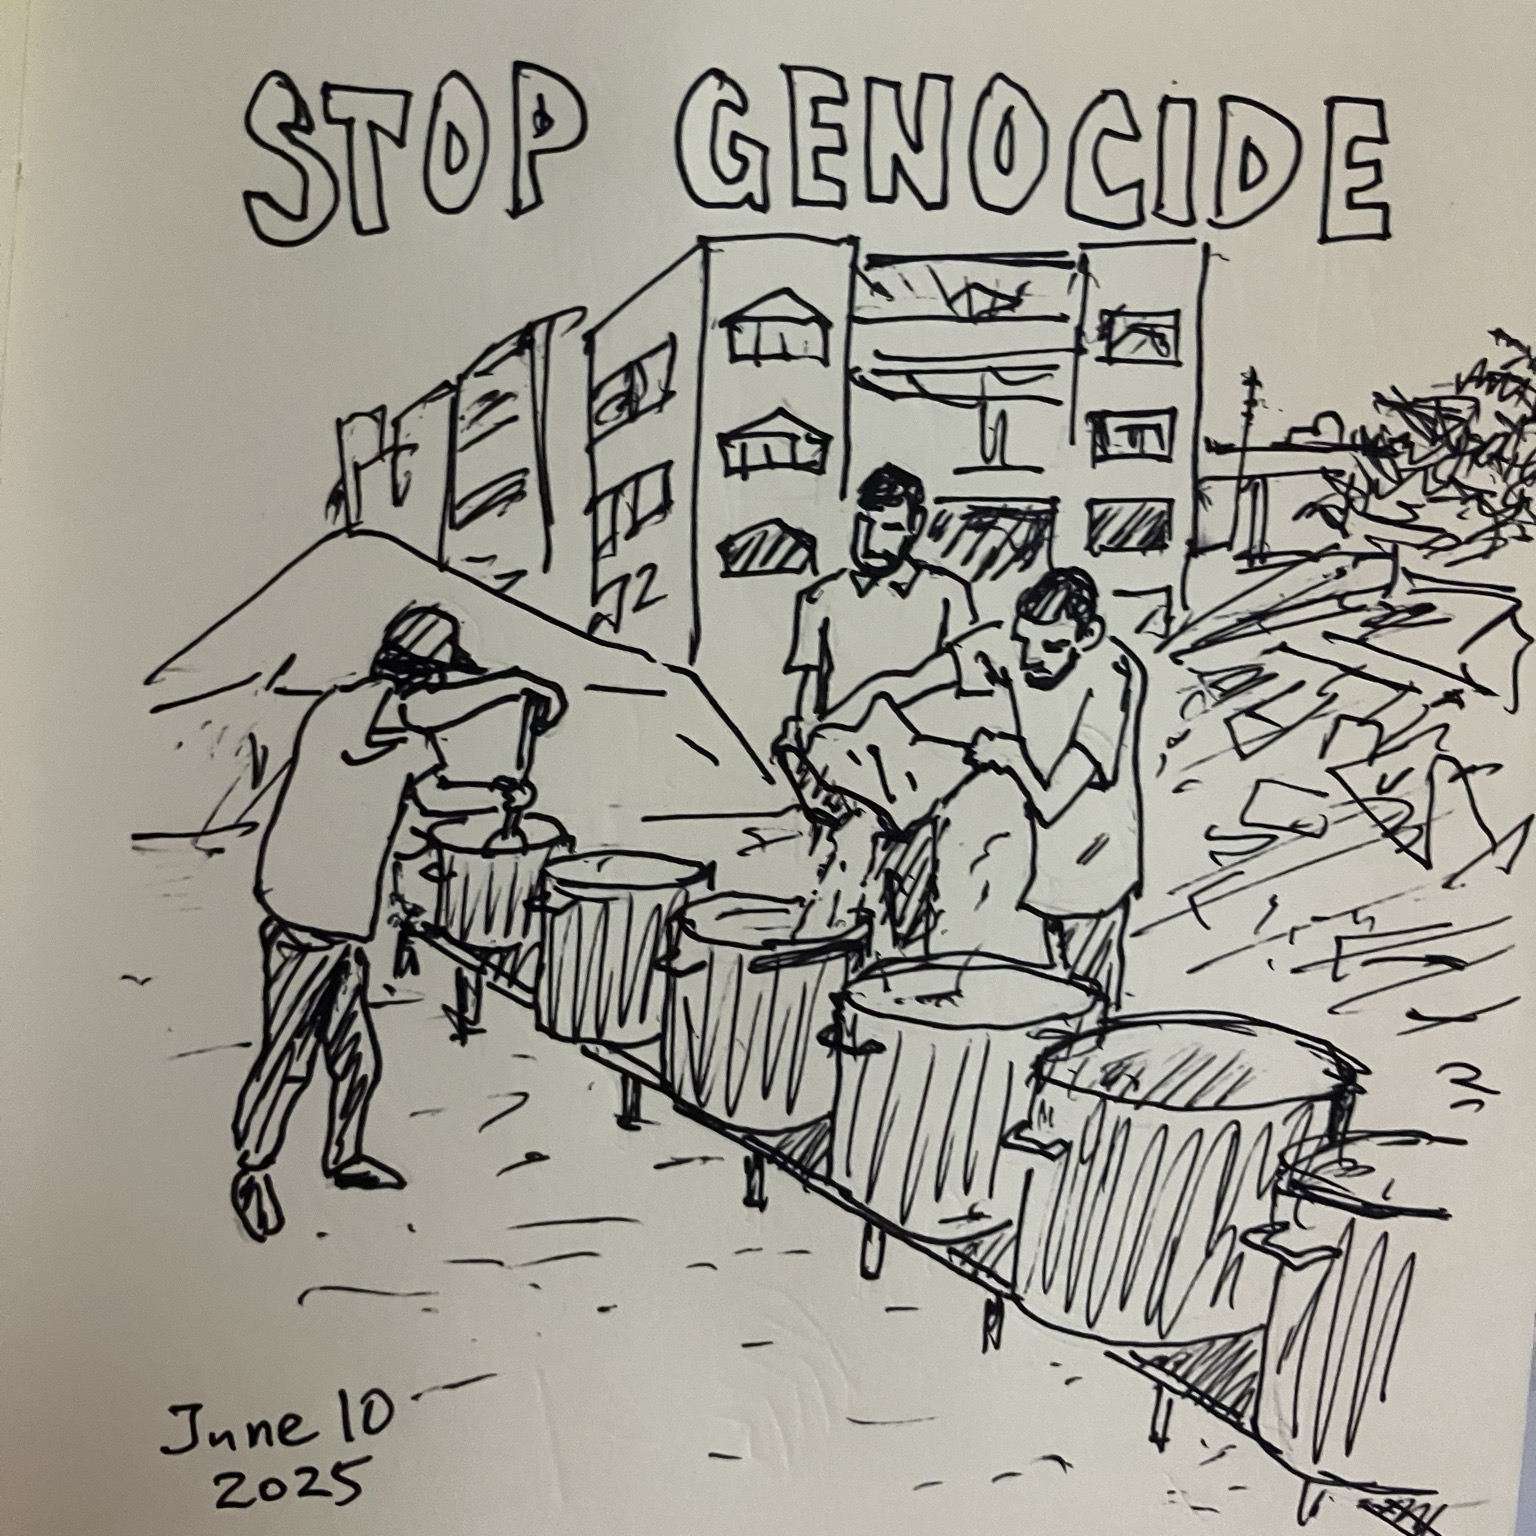 STOP GENOCIDE
June 10
2025